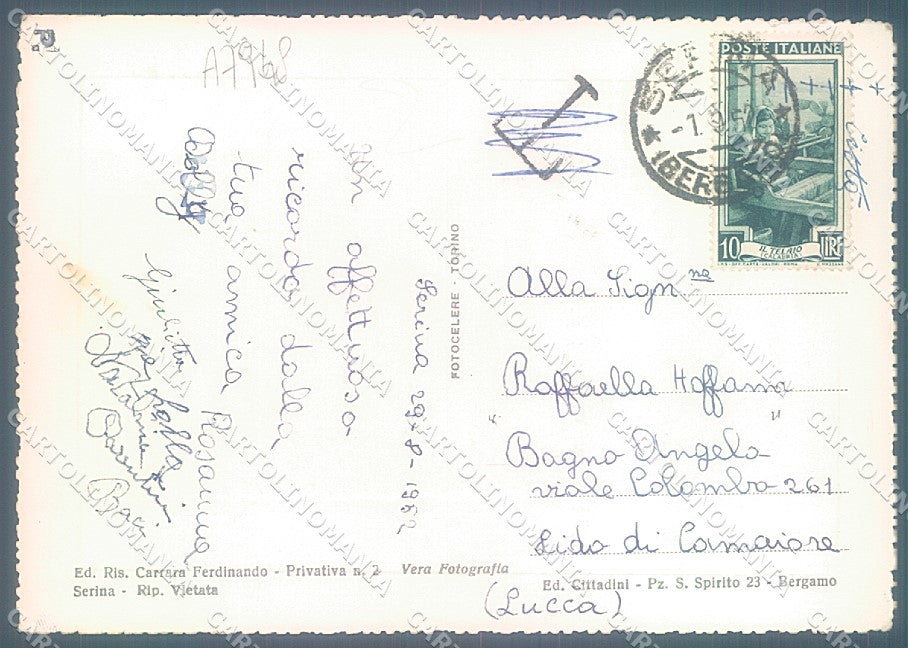 P.
A7768
T
SERINA
-7.9.52
(BERGAMO)
POSTE ITALIANE
10 IL TELAIO LIRE
(CALABRIA)
Serina 29-8-1952
Un affettuoso
ricordo dalla
tua amica Rosanna
Dolly
Giulietta
Baci
Alla Sign na
Raffaella Hoffam
"Bagno Angelo"
viale Colombo 261
Lido di Camaiore
(Lucca)
FOTOCELERE - TORINO
Ed. Ris. Carrara Ferdinando - Privativa n. 2 Vera Fotografia
Serina - Rip. Vietata
Ed. Cittadini - Pz. S. Spirito 23 - Bergamo
CARTOLINOMANIA